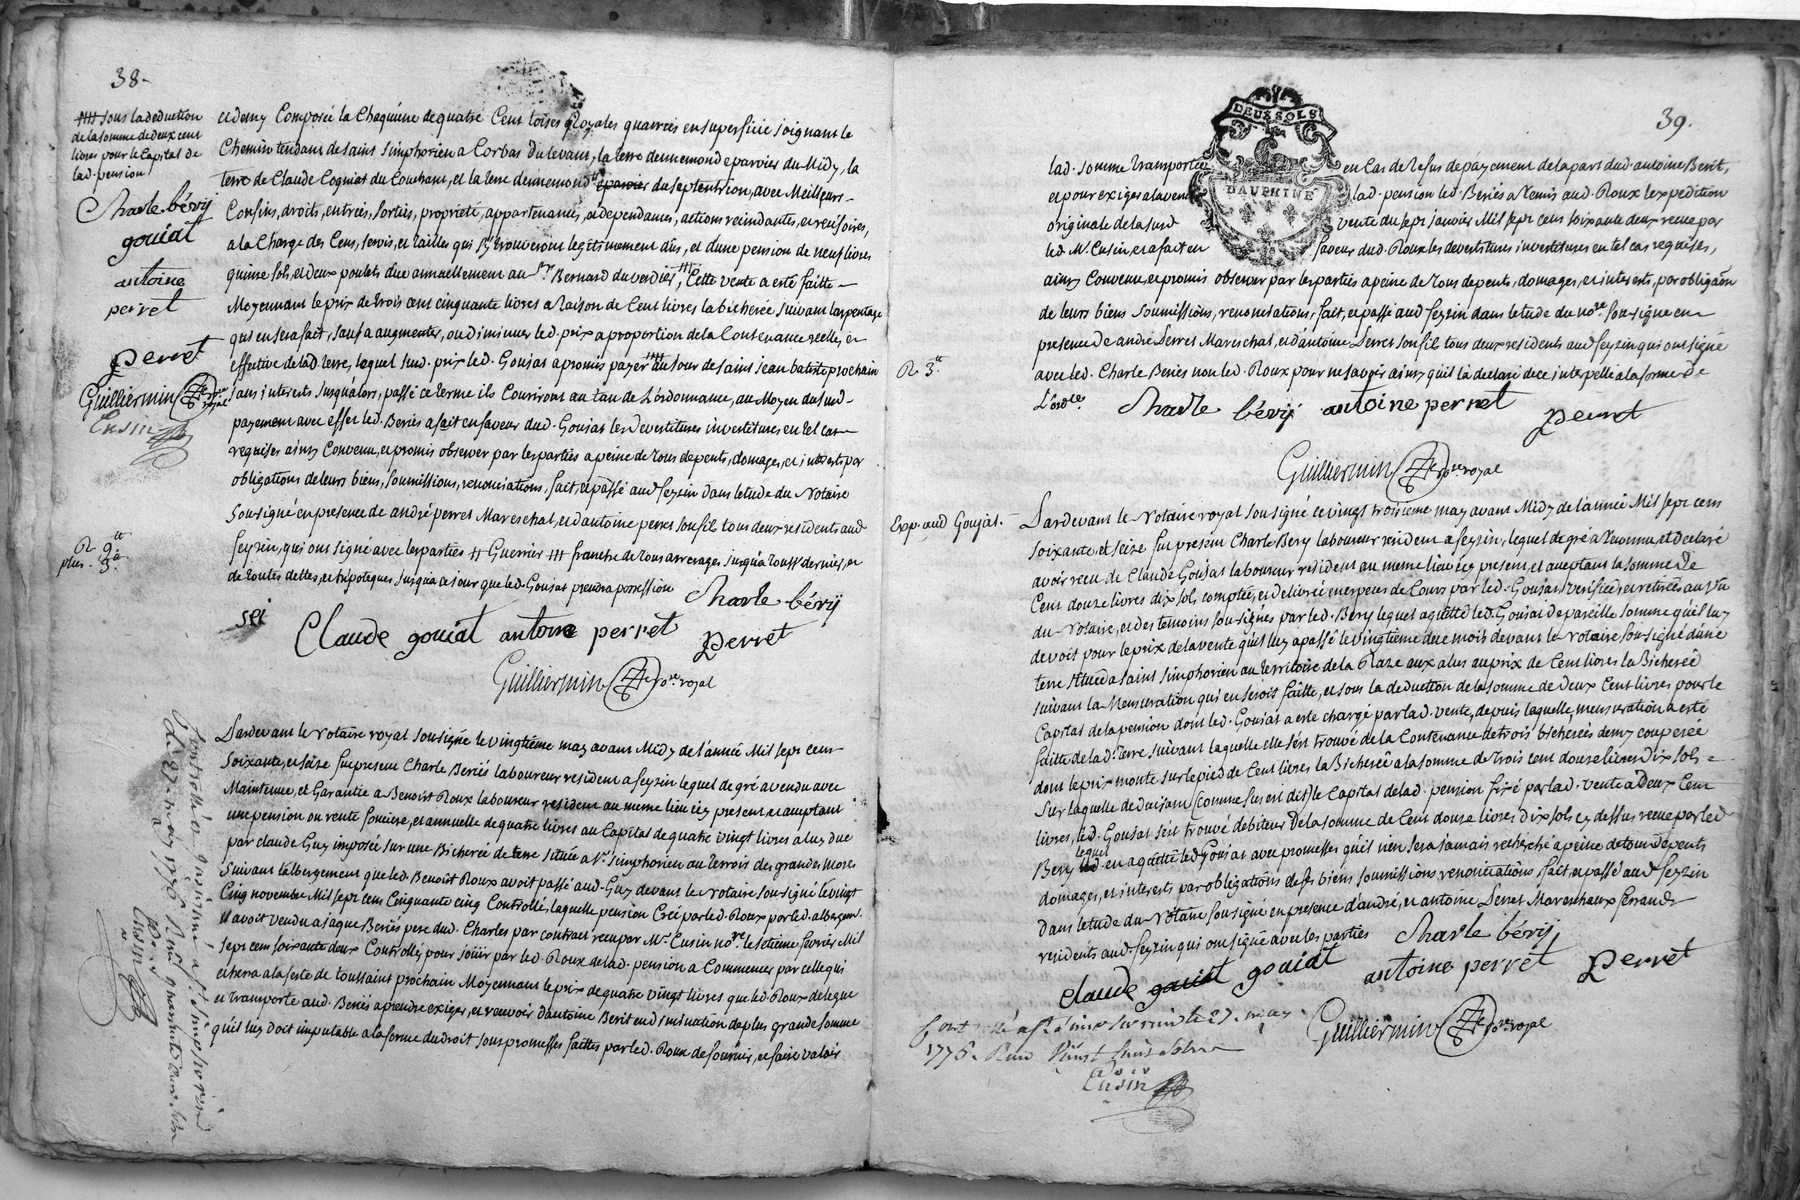 38.
sous la deduction
de la somme de deux cent
livres pour le Capital de
lad. pension
Charle béry
goujat
antoine
perret
perret
Guilliermin no.re royal
Cusin
R. 9.tt
plus. 3.tt
et demy Composée la Chaquune de quatre Cent toises Royales quarrées en superficie joignant le
Chemin tendant de saint simphorien a Corbas du levant, la terre dennemond eparvier du Midy, la
terre de Claude Cogniat du Couchant, et la terre dennemond eparvier du septentrion, avec Meilleurs
Confins, droits, entrées, sorties, proprieté, appartenances, et dependances, actions reindantes, et recisoires,
a la Charge des Cens, servis, et tailles qui s'y trouveront legitimement dus, et d'une pension de neuf livres
quinze sols, et deux poulets due annuellement au Sr. Bernard du verdier, Cette vente a esté faitte
Moyennant le prix de trois cent cinquante livres a raison de Cent livres la bicherée suivant larpentage
qui en sera fait, sauf a augmenter, ou diminuer led. prix a proportion de la Contenance reelle, et
effective de lad. terre, lequel sud. prix led. Goujat a promis payer au jour de saint jean batiste prochain
sans interets jusqu'alors, passé ce terme ils Courriront au tau de L'ordonnance, au Moyen du sud.
payement avec effet led. Beriés a fait en faveur dud. Goujat les devestitures investitures en tel cas
requises ainsy Convenu, et promis observer par les parties a peine de tous depents, domages, et interets par
obligations de leurs biens, soumissions, renonciations, fait, et passé aud. feyzin dans letude du Notaire
sousigné en presence de andré perret Mareschal, et d'antoine perret son fil tous deux residents aud.
feyzin, qui ont signé avec les parties Guerrier franche de tous arrerages jusqu'a
de toutes dettes, et hipoteques jusqu'a ce jour que led. Goujat prendra possession Charle béry
Claude goujat antoine perret perret
Guilliermin no.re royal
Pardevant le Notaire royal sousigné le vingtième may avant Midy de l'année Mil sept cent
soixante, et seize fut present Charle Beriés laboureur resident a feyzin lequel de gré a vendu avec
Maintenue, et Garantie a Benoist Roux laboureur resident au meme lieu icy present et acceptant
une pension ou rente fonciere, et annuelle de quatre livres au Capital de quatre vingt livres a luy due
par claude Guy imposée sur une Bicherée de terre située a St. simphorien au terroir des grandes mores
suivant l'albergement que led. Benoist Roux avoit passé aud. Guy devant le Notaire sousigné le vingt
Cinq novembre Mil sept cent Cinquante cinq Controllé, laquelle pension Créé par led. Roux par led. albergem.t
il avoit vendu a jaque Beriés pere dud. Charles par contract recu par M.e Cusin no.re le
sept cent soixante deux Controllé, pour joüir par led. Roux de lad. pension a Commencer par celle qui
echera a la feste de toussaint prochain Moyennant le prix de quatre vingt livres que led. Roux delegue
et transporte aud. Beriés a prendre exiger, et recevoir d'antoine Berit en diminution de plus grande somme
qu'il luy doit imputable a la forme du droit sous promesses faittes par led. Roux de fournir, et faire valoir
39.
DEUX SOLS
DAUPHINÉ
lad. somme transportée en Cas de refus de payement de la part dud. antoine Berit,
et pour exiger a la venir lad. pension led. Beriés a remis aud. Roux lexpedition
originale de la sud. vente du sept janvier Mil sept cent soixante deux recue par
led. M.e Cusin, et a fait en faveur dud. Roux les devestitures investitures en tel cas requises,
ainsy Convenu, et promis observer par les parties a peine de tous depents, domages, et interets, par obligaõn
de leurs biens soumissions, renonciations, fait, et passé aud. feyzin dans letude du no.re sousigné en
presence de andré Perret Mareschal, et d'antoine Perret son fil tous deux residents aud. feyzin qui ont signé
avec led. Charle Beriés non led. Roux pour ne savoir ainsy qu'il l'a declaré de ce interpellé a la forme de
L'ord.ce
R. 3.tt
Charle béry antoine perret perret
Guilliermin no.re royal
Exp. aud. Goujat.
Pardevant le Notaire royal sousigné ce vingt troisieme may avant Midy de l'année Mil sept cent
soixante, et seize fut present Charle Bery laboureur resident a feyzin, lequel de gré a reconnu, et declaré
avoir recu de Claude Goujat laboureur resident au meme lieu icy present, et acceptant la somme de
Cent douze livres dix sols, comptée, et delivrée en especes de Cours par led. Goujat verifiée, et retirée au vu
du Notaire, et des temoins sousignés par led. Bery lequel aquitte led. Goujat de pareille somme qu'il luy
devoit pour le prix de la vente qu'il luy a passé le vingtième du c. mois devant le Notaire sousigné d'une
terre située a saint simphorien au territoire de la Plaze aux alus au prix de Cent livres la Bicherée
suivant la Mensuration qui en seroit faitte, et sous la deduction de la somme de Deux Cent livres pour le
Capital de la pension dont led. Goujat a esté chargé par lad. vente, depuis laquelle, mensuration a esté
faitte de lad. terre suivant laquelle elle s'est trouvé de la Contenance de trois bicherées demy couperée
dont le prix monte sur le pied de Cent livres la Bicherée a la somme de Trois cent douze livres dix sols
sur laquelle deduisant (comme sus est dit) le Capital de lad. pension fixé par lad. vente a Deux Cent
livres, led. Goujat s'est trouvé debiteur de la somme de Cent douze livres dix sols cy dessus recue par led.
Bery lequel en aquitte led. Goujat avec promesses qu'il n'en sera jamais recherché a peine de tous depents
domages, et interets par obligations de ses biens soumissions renonciations fait, et passé aud. feyzin
dans letude du Notaire sousigné en presence d'andré, et antoine Perret Mareschaux ferands
residents aud. feyzin qui ont signé avec les parties Charle béry
claude goujat antoine perret perret
Guilliermin no.re royal
le 27. may
1776. Reçu
Cusin